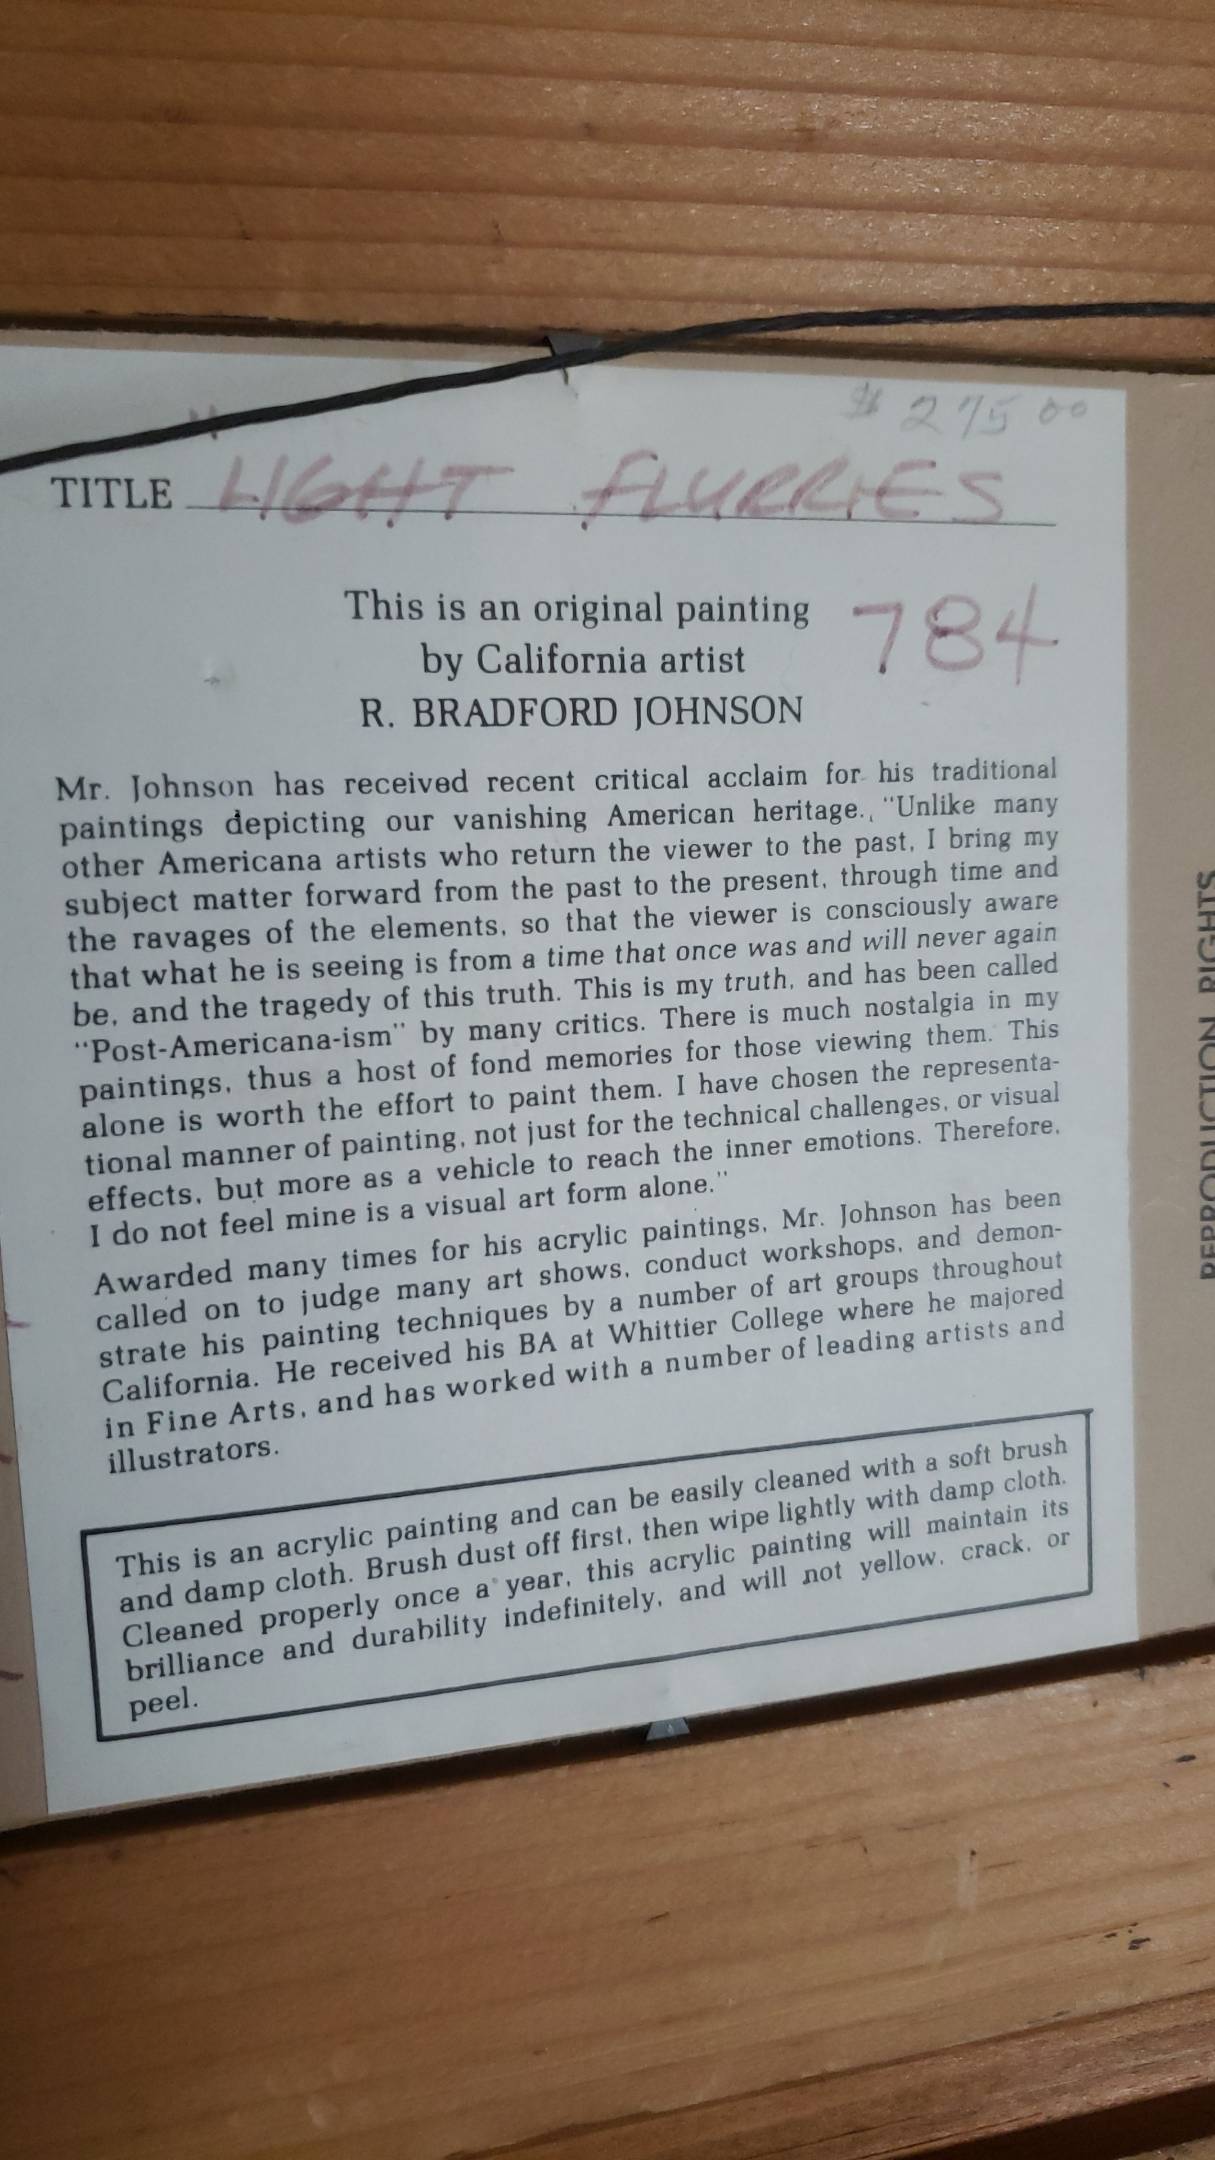 $ 275 00
TITLE LIGHT FLURRIES
This is an original painting
by California artist
R. BRADFORD JOHNSON
784
Mr. Johnson has received recent critical acclaim for his traditional
paintings depicting our vanishing American heritage. "Unlike many
other Americana artists who return the viewer to the past, I bring my
subject matter forward from the past to the present, through time and
the ravages of the elements, so that the viewer is consciously aware
that what he is seeing is from a time that once was and will never again
be, and the tragedy of this truth. This is my truth, and has been called
"Post-Americana-ism" by many critics. There is much nostalgia in my
paintings, thus a host of fond memories for those viewing them. This
alone is worth the effort to paint them. I have chosen the representa-
tional manner of painting, not just for the technical challenges, or visual
effects, but more as a vehicle to reach the inner emotions. Therefore,
I do not feel mine is a visual art form alone."
Awarded many times for his acrylic paintings, Mr. Johnson has been
called on to judge many art shows, conduct workshops, and demon-
strate his painting techniques by a number of art groups throughout
California. He received his BA at Whittier College where he majored
in Fine Arts, and has worked with a number of leading artists and
illustrators.
This is an acrylic painting and can be easily cleaned with a soft brush
and damp cloth. Brush dust off first, then wipe lightly with damp cloth.
Cleaned properly once a year, this acrylic painting will maintain its
brilliance and durability indefinitely, and will not yellow, crack, or
peel.
REPRODUCTION RIGHTS